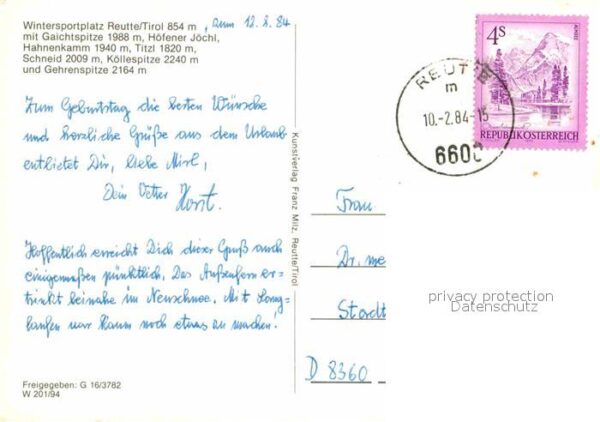 Wintersportplatz Reutte/Tirol 854 m, zum 12.2.84
mit Gaichtspitze 1988 m, Höfener Jöchl,
Hahnenkamm 1940 m, Titzl 1820 m,
Schneid 2009 m, Köllespitze 2240 m
und Gehrenspitze 2164 m
Zum Geburtstag die besten Wünsche
und herzliche Grüße aus dem Urlaub
entbietet Dir, liebe
Dein Vetter Horst.
Hoffentlich erreicht Dich dieser Gruß auch
einigermaßen pünktlich. Das Außerfern er-
trinkt beinahe im Neuschnee. Mit Lang-
laufen war kaum noch etwas zu machen.
Freigegeben: G 16/3782
W 201/94
Kunstverlag Franz Milz, Reutte/Tirol
4S
REPUBLIK ÖSTERREICH
REUTTE
m
10.-2.84-15
6600
Frau
Dr. me
Stadt
D 8360
privacy protection
Datenschutz